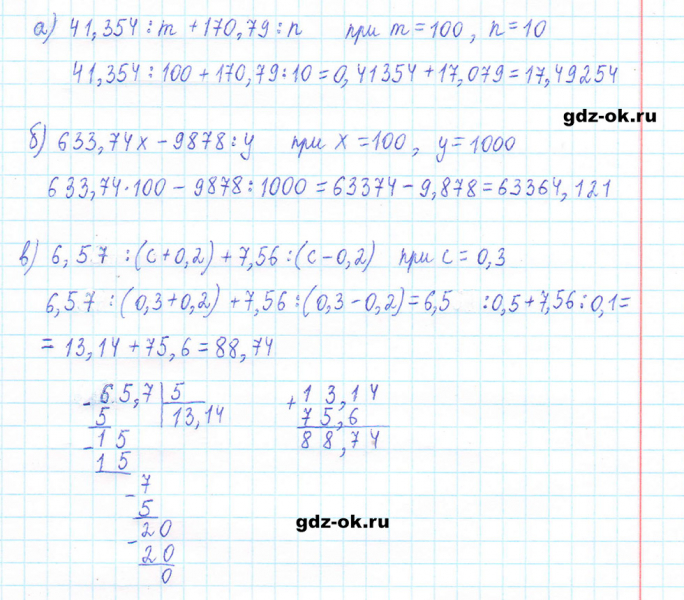 а) 41,354 : m + 170,79 : n при m = 100, n = 10
41,354 : 100 + 170,79 : 10 = 0,41354 + 17,079 = 17,49254
gdz-ok.ru
б) 633,74x - 9878 : y при x = 100, y = 1000
633,74 · 100 - 9878 : 1000 = 63374 - 9,878 = 63364,121
в) 6,57 : (c + 0,2) + 7,56 : (c - 0,2) при c = 0,3
6,57 : (0,3 + 0,2) + 7,56 : (0,3 - 0,2) = 6,5 : 0,5 + 7,56 : 0,1 =
= 13,14 + 75,6 = 88,74
- 65,7 | 5
5 | 13,14
- 15
15
- 7
5
- 20
20
0
+ 13,14
75,6
88,74
gdz-ok.ru